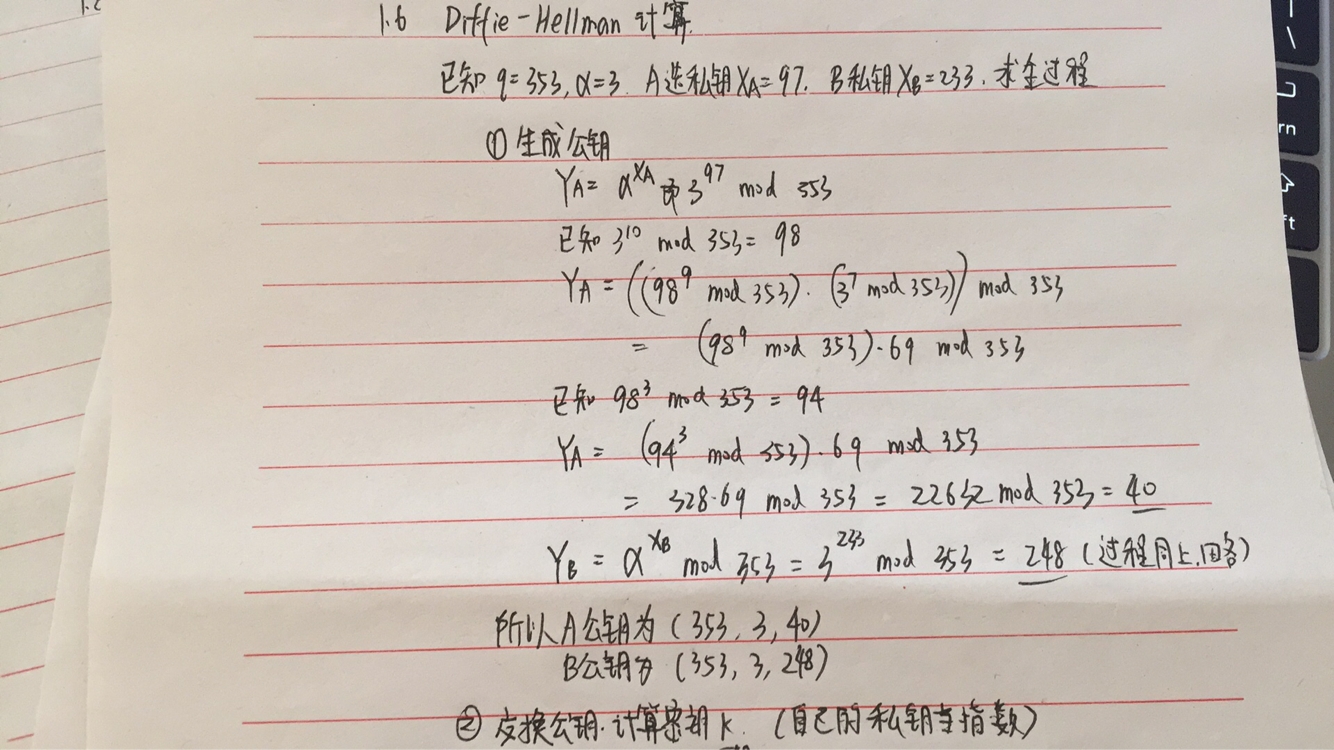 1.6 Diffie-Hellman 计算.
已知 q=353, α=3. A选私钥XA=97. B私钥XB=233. 求全过程
① 生成公钥
YA= α^XA 即 3^97 mod 353
已知 3^10 mod 353= 98
YA = ((98^9 mod 353)·(3^7 mod 353)) mod 353
= (98^9 mod 353)·69 mod 353
已知 98^3 mod 353 = 94
YA = (94^3 mod 353)·69 mod 353
= 328·69 mod 353 = 22632 mod 353 = 40
YB = α^XB mod 353 = 3^233 mod 353 = 248 (过程同上,略)
所以A公钥为 (353, 3, 40)
B公钥为 (353, 3, 248)
② 交换公钥.计算密钥K. (自己的私钥当指数)
\
rn
ft